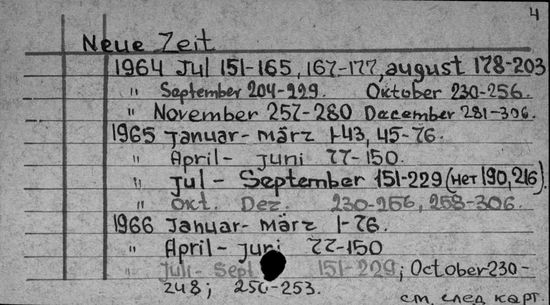 4
Neue Zeit
1964 Jul 151-165, 167-177, august 178-203
" September 204-229. Oktober 230-256.
" November 257-280 December 281-306.
1965 Januar- märz 1-43, 45-76.
" April- Juni 77-150.
" Jul- September 151-229 (нет 190, 216).
" Okt. Dez. 230-256, 258-306.
1966 Januar- märz 1-76.
" April- Juni 77-150
" Juli- Sept. 151-229; October 230-
248; 250-253.
см. след карт.